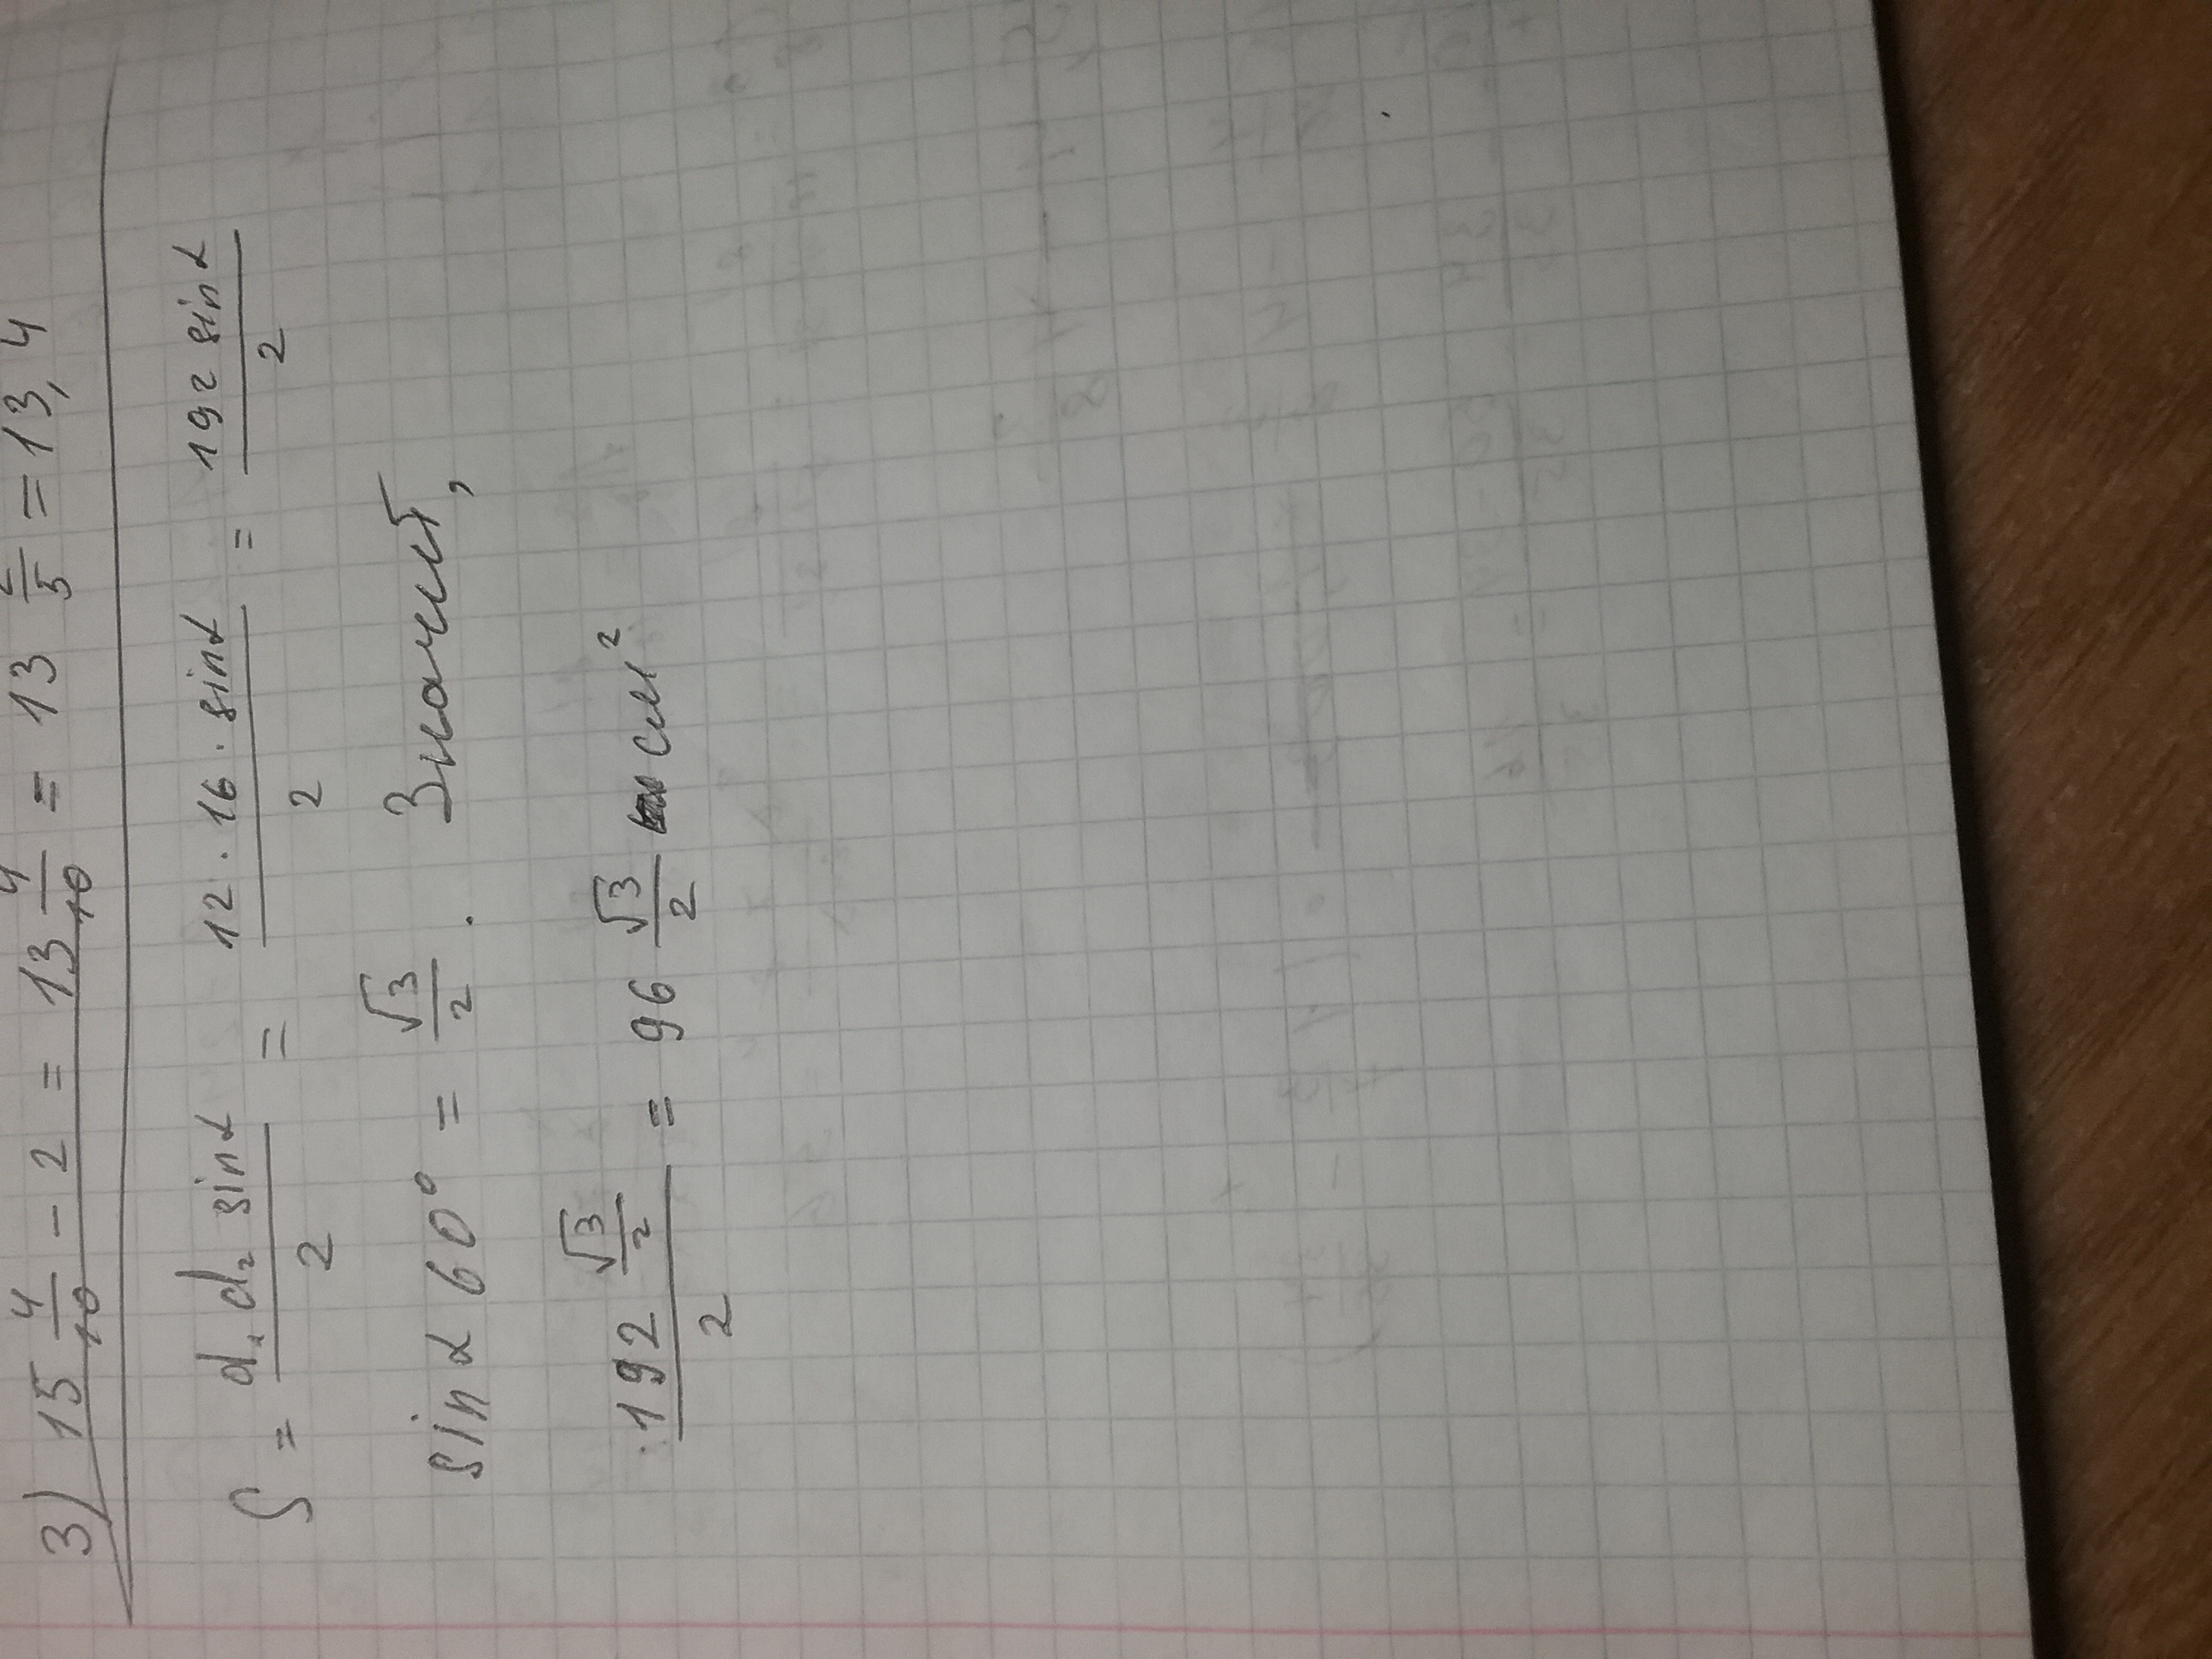 3) 15 4/10 - 2 = 13 4/10 = 13 2/5 = 13,4
S = d₁d₂ sinα / 2 = 12 · 16 · sinα / 2 = 192 sinα / 2
sin α 60° = √3/2 . Значит,
192 √3/2 / 2 = 96 √3/2 см²